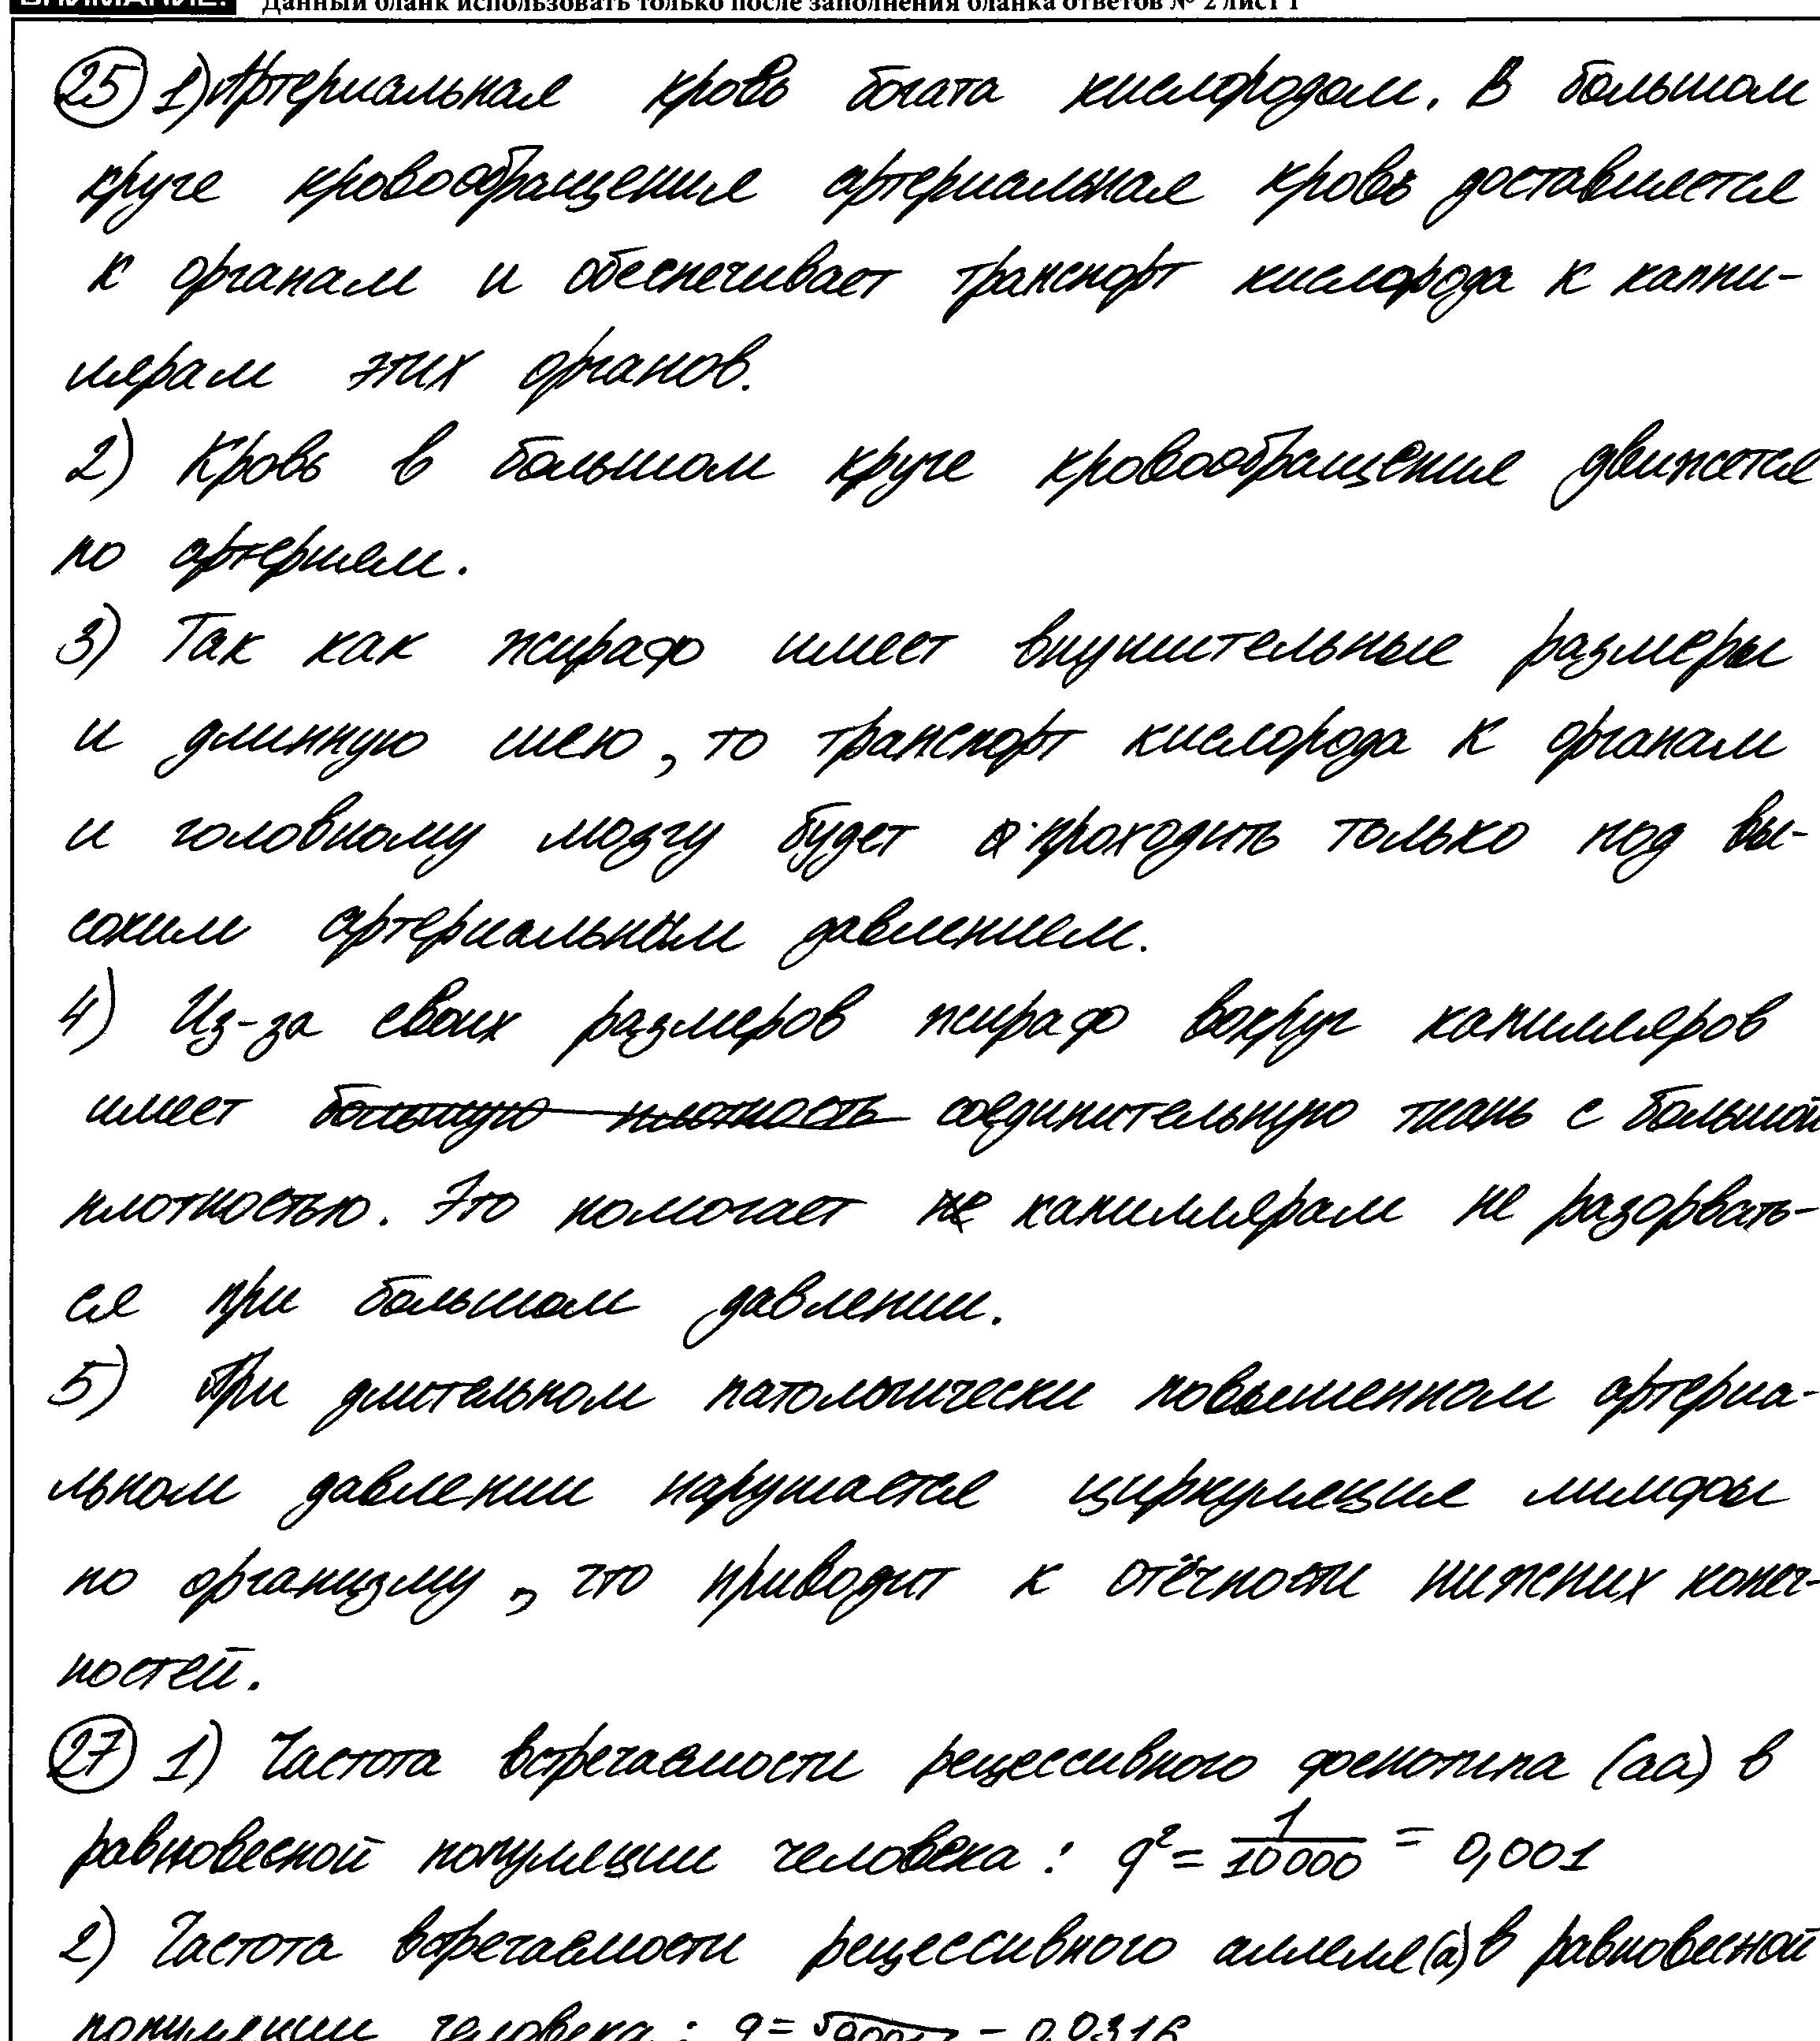 ВНИМАНИЕ! Данный бланк использовать только после заполнения бланка ответов № 2 лист 1
25) 1) Артериальная кровь богата кислородом. В большом
круге кровообращения артериальная кровь доставляется
к органам и обеспечивает транспорт кислорода к каппи-
лярам этих органов.
2) Кровь в большом круге кровообращения движется
по артериям.
3) Так как жираф имеет внушительные размеры
и длинную шею, то транспорт кислорода к органам
и головному мозгу будет проходить только под вы-
соким артериальным давлением.
4) Из-за своих размеров жираф вокруг капилляров
имеет большую плотность соединительную ткань с большой
плотностью. Это помогает не капиллярам не разорвать-
ся при большом давлении.
5) При длительном патологически повышенном артериа-
льном давлении нарушается циркуляция лимфы
по организму, что приводит к отёчности нижних конеч-
ностей.
27) 1) Частота встречаемости рецессивного фенотипа (aa) в
равновесной популяции человека: q² = 1/10000 = 0,001
2) Частота встречаемости рецессивного аллеля (a) в равновесной
популяции человека: q = √0,001 = 0,0316